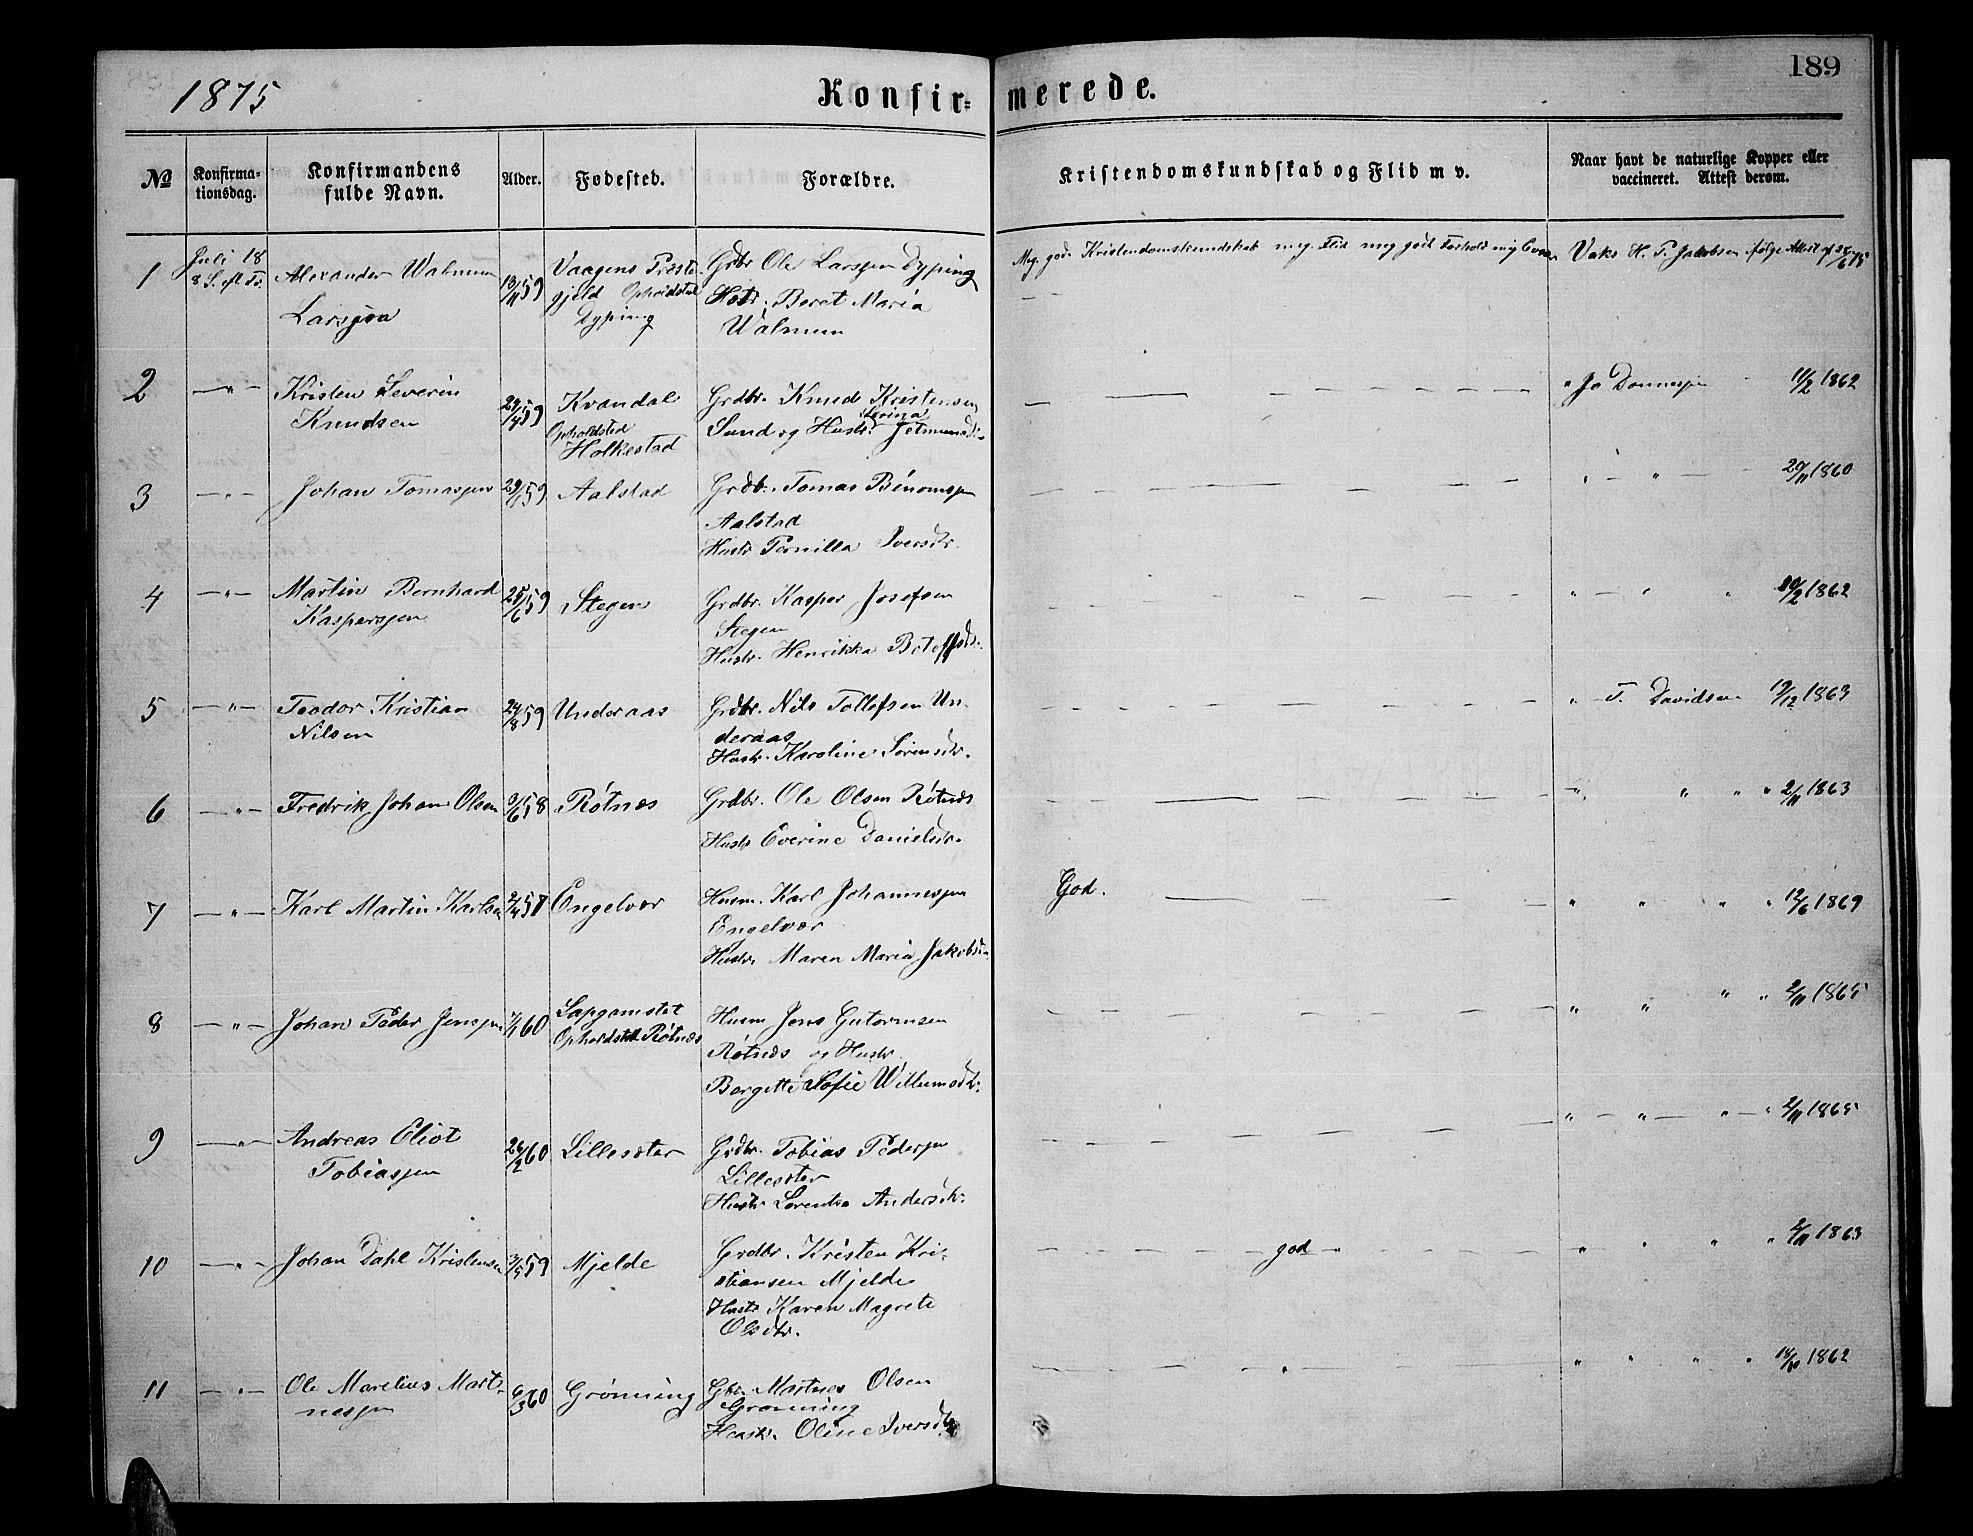 189
1875
Konfir=
merede.
No
Konfirma-
tionsdag.
Konfirmandens
fulde Navn.
Alder.
Fødested.
Forældre.
Kristendomskundskab og Flid m v.
Naar havt de naturlige Kopper eller
vaccineret. Attest derom.
1
Juli 18
8 S. eft Tr.
Alexander Walnum
Larssen
13/11 59
Vaagens Preste
gjeld Opholdsted
Dyping
Grdbr Ole Larssen Dyping
Hstr. Beret Maria
Walnum
Meg. god. Kristendomskundskab meg. Flid meg god Forhold
Vaks H. P. Jakobsen følge Attest af 28/6 75
2
—〃—
Kristen Severin
Knudsen
29/4 59
Kvandal
Opholdsted
Holkestad
Grdbr. Knud Kristensen
Sund og Hustr. Serina
〃 Jo 11/2 1862
3
—〃—
Johan Tomassen
59
Aalstad
Grdbr. Tomas
Aalstad
Hustr Pernilla Iversdtr.
〃 — 〃 — 20/11 1860
4
—〃—
Martin Bernhard
Kasperssen
25/6 59
Stegen
Grdbr. Kasper Josefsen
Stegen
Hustr. Henrikka
〃 — 〃 〃 /2 1862
5
—〃—
Teodor Kristian
Nilsen
24/8 59
Underaas
Grdbr. Nils Tollefsen Un-
deraas
Hustr. Karoline Sørensdtr.
〃 T. Davidsen 19/12 1863
6
—〃—
Fredrik Johan Olsen
9/6 58
Røtnæs
Grdbr. Ole Olsen Røtnæs
Hustr Everine Danielsdtr.
〃 〃 〃 〃 2/11 1863
7
—〃—
Karl Martin Karlsen
2/4 58
Engelvær
Husm. Karl Johannessen
Engelvær
Hustr. Maren Maria Jakobsdtr
God.
〃 〃 〃 〃 12/6 1869
8
—〃—
Johan Peder Jenssen
7/1 60
Lapgamstet
Opholdsted Røtnæs
Husm Jens Gutormsen
Røtnæs og Hustr.
Bergitte Sofie Willumsdtr.
〃 〃 〃 〃 2/11 1865
9
—〃—
Andreas Eliot
Tobiassen
26/2 60
Lillesæter
Grdbr. Tobias Pedersen
Lillesæter
Hustr. Lorentse Andersdtr.
〃 — 〃 — 〃 — 〃 2/11 1865
10
—〃—
Johan Dahl Kristensen
3/5 59
Mjelde
Grdbr. Kristen Kri-
stiansen Mjelde
Hustr Karen Magrete
Olsdtr.
god
〃 〃 〃 〃 2/11 1863
11
—〃—
Ole Marelius Mart-
nessen
6/3 60
Grønning
Gbr. Martnes Olsen
Grønning
Hustr. Oline Iversdtr
〃
〃 〃 〃 〃 18/10 1862